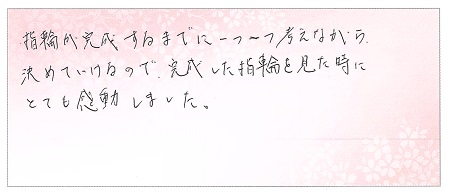 指輪が完成するまでに一つ一つ考えながら、
決めていけるので、完成した指輪を見た時に
とても感動しました。